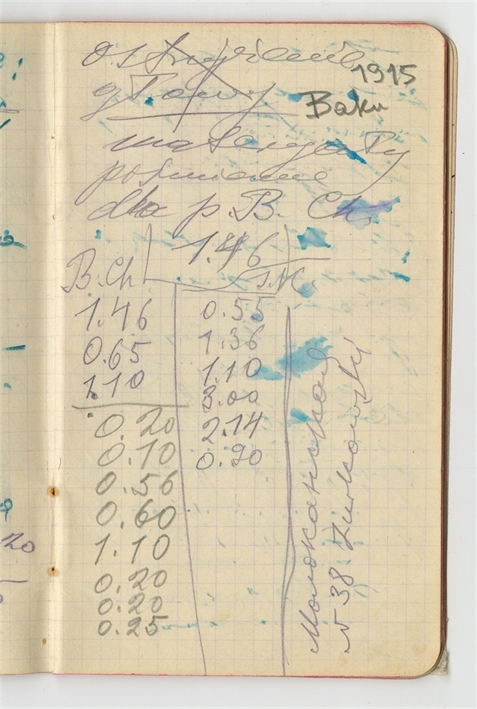 1915
głowy
Baku
materyały
piśmienne
dla p. B. Ch.
1.46
B. Ch.
1.46
0.65
1.10
0.20
0.10
0.56
0.60
1.10
0.20
0.20
0.25
0.55
1.36
1.10
3.00
2.14
0.70
Молоканская
№ 38 Żurkowsky
20